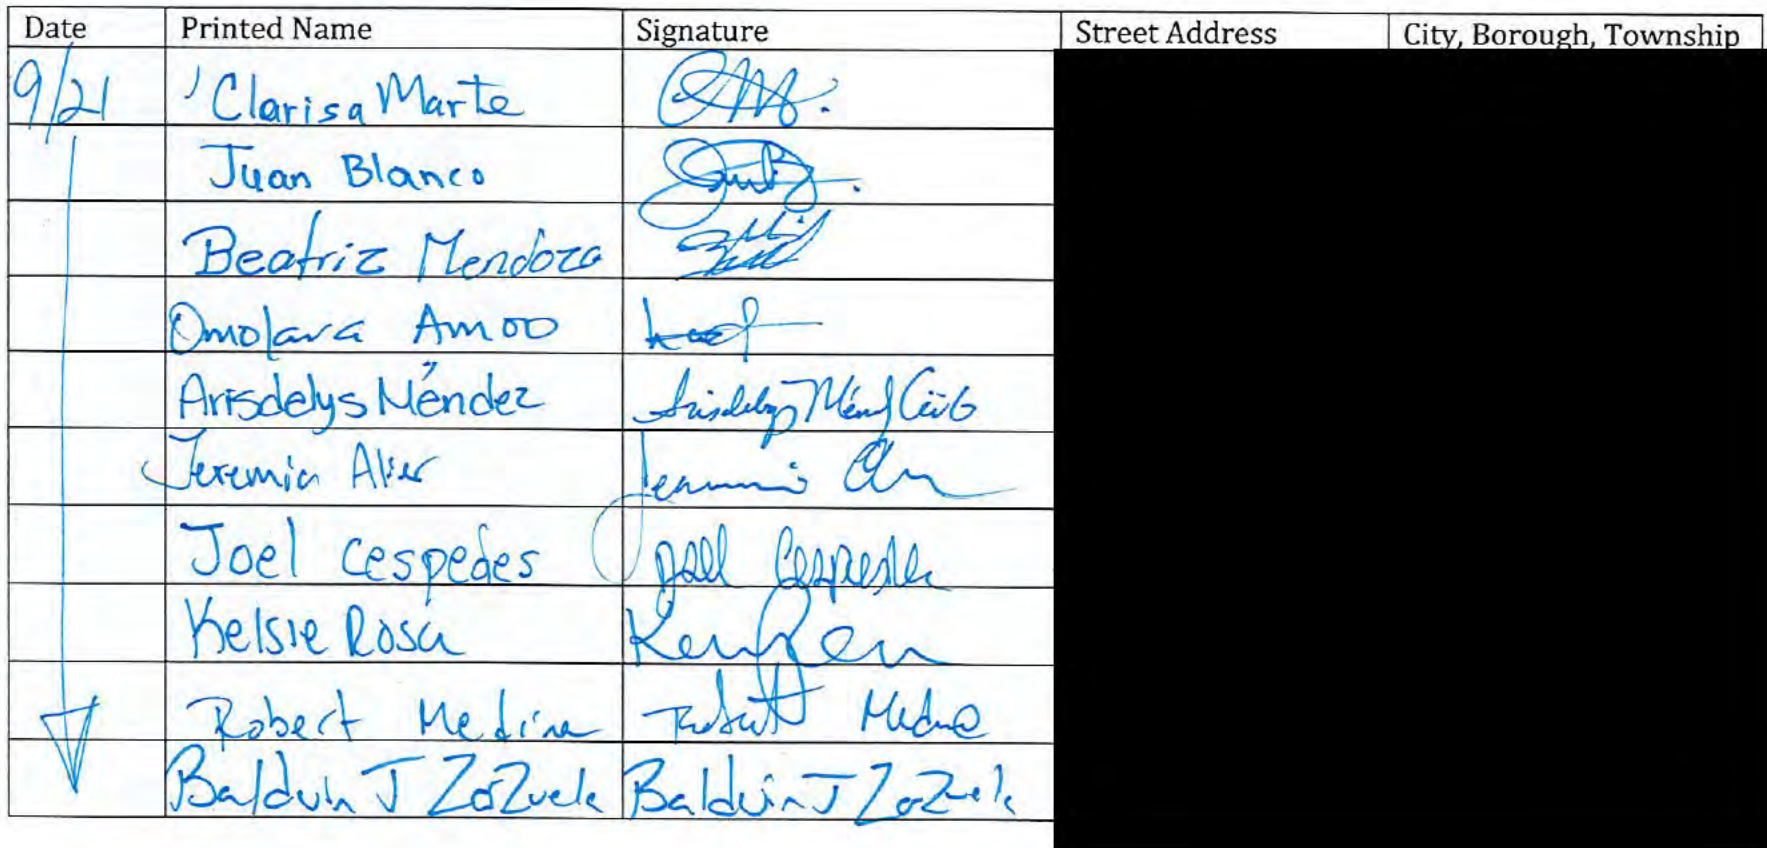 Date Printed Name Signature Street Address City, Borough, Township
9/21 Clarisa Marte CM.
Juan Blanco
Beatriz Mendoza
Omolara Amoo
Arisdelys Méndez Arisdelys Ménd
Jeremia Alier
Joel Cespedes Joel Cespedes
Kelsie Rosa
Robert Medina Robert Medina
Baldwin J Zozuela Baldwin J Zozuela